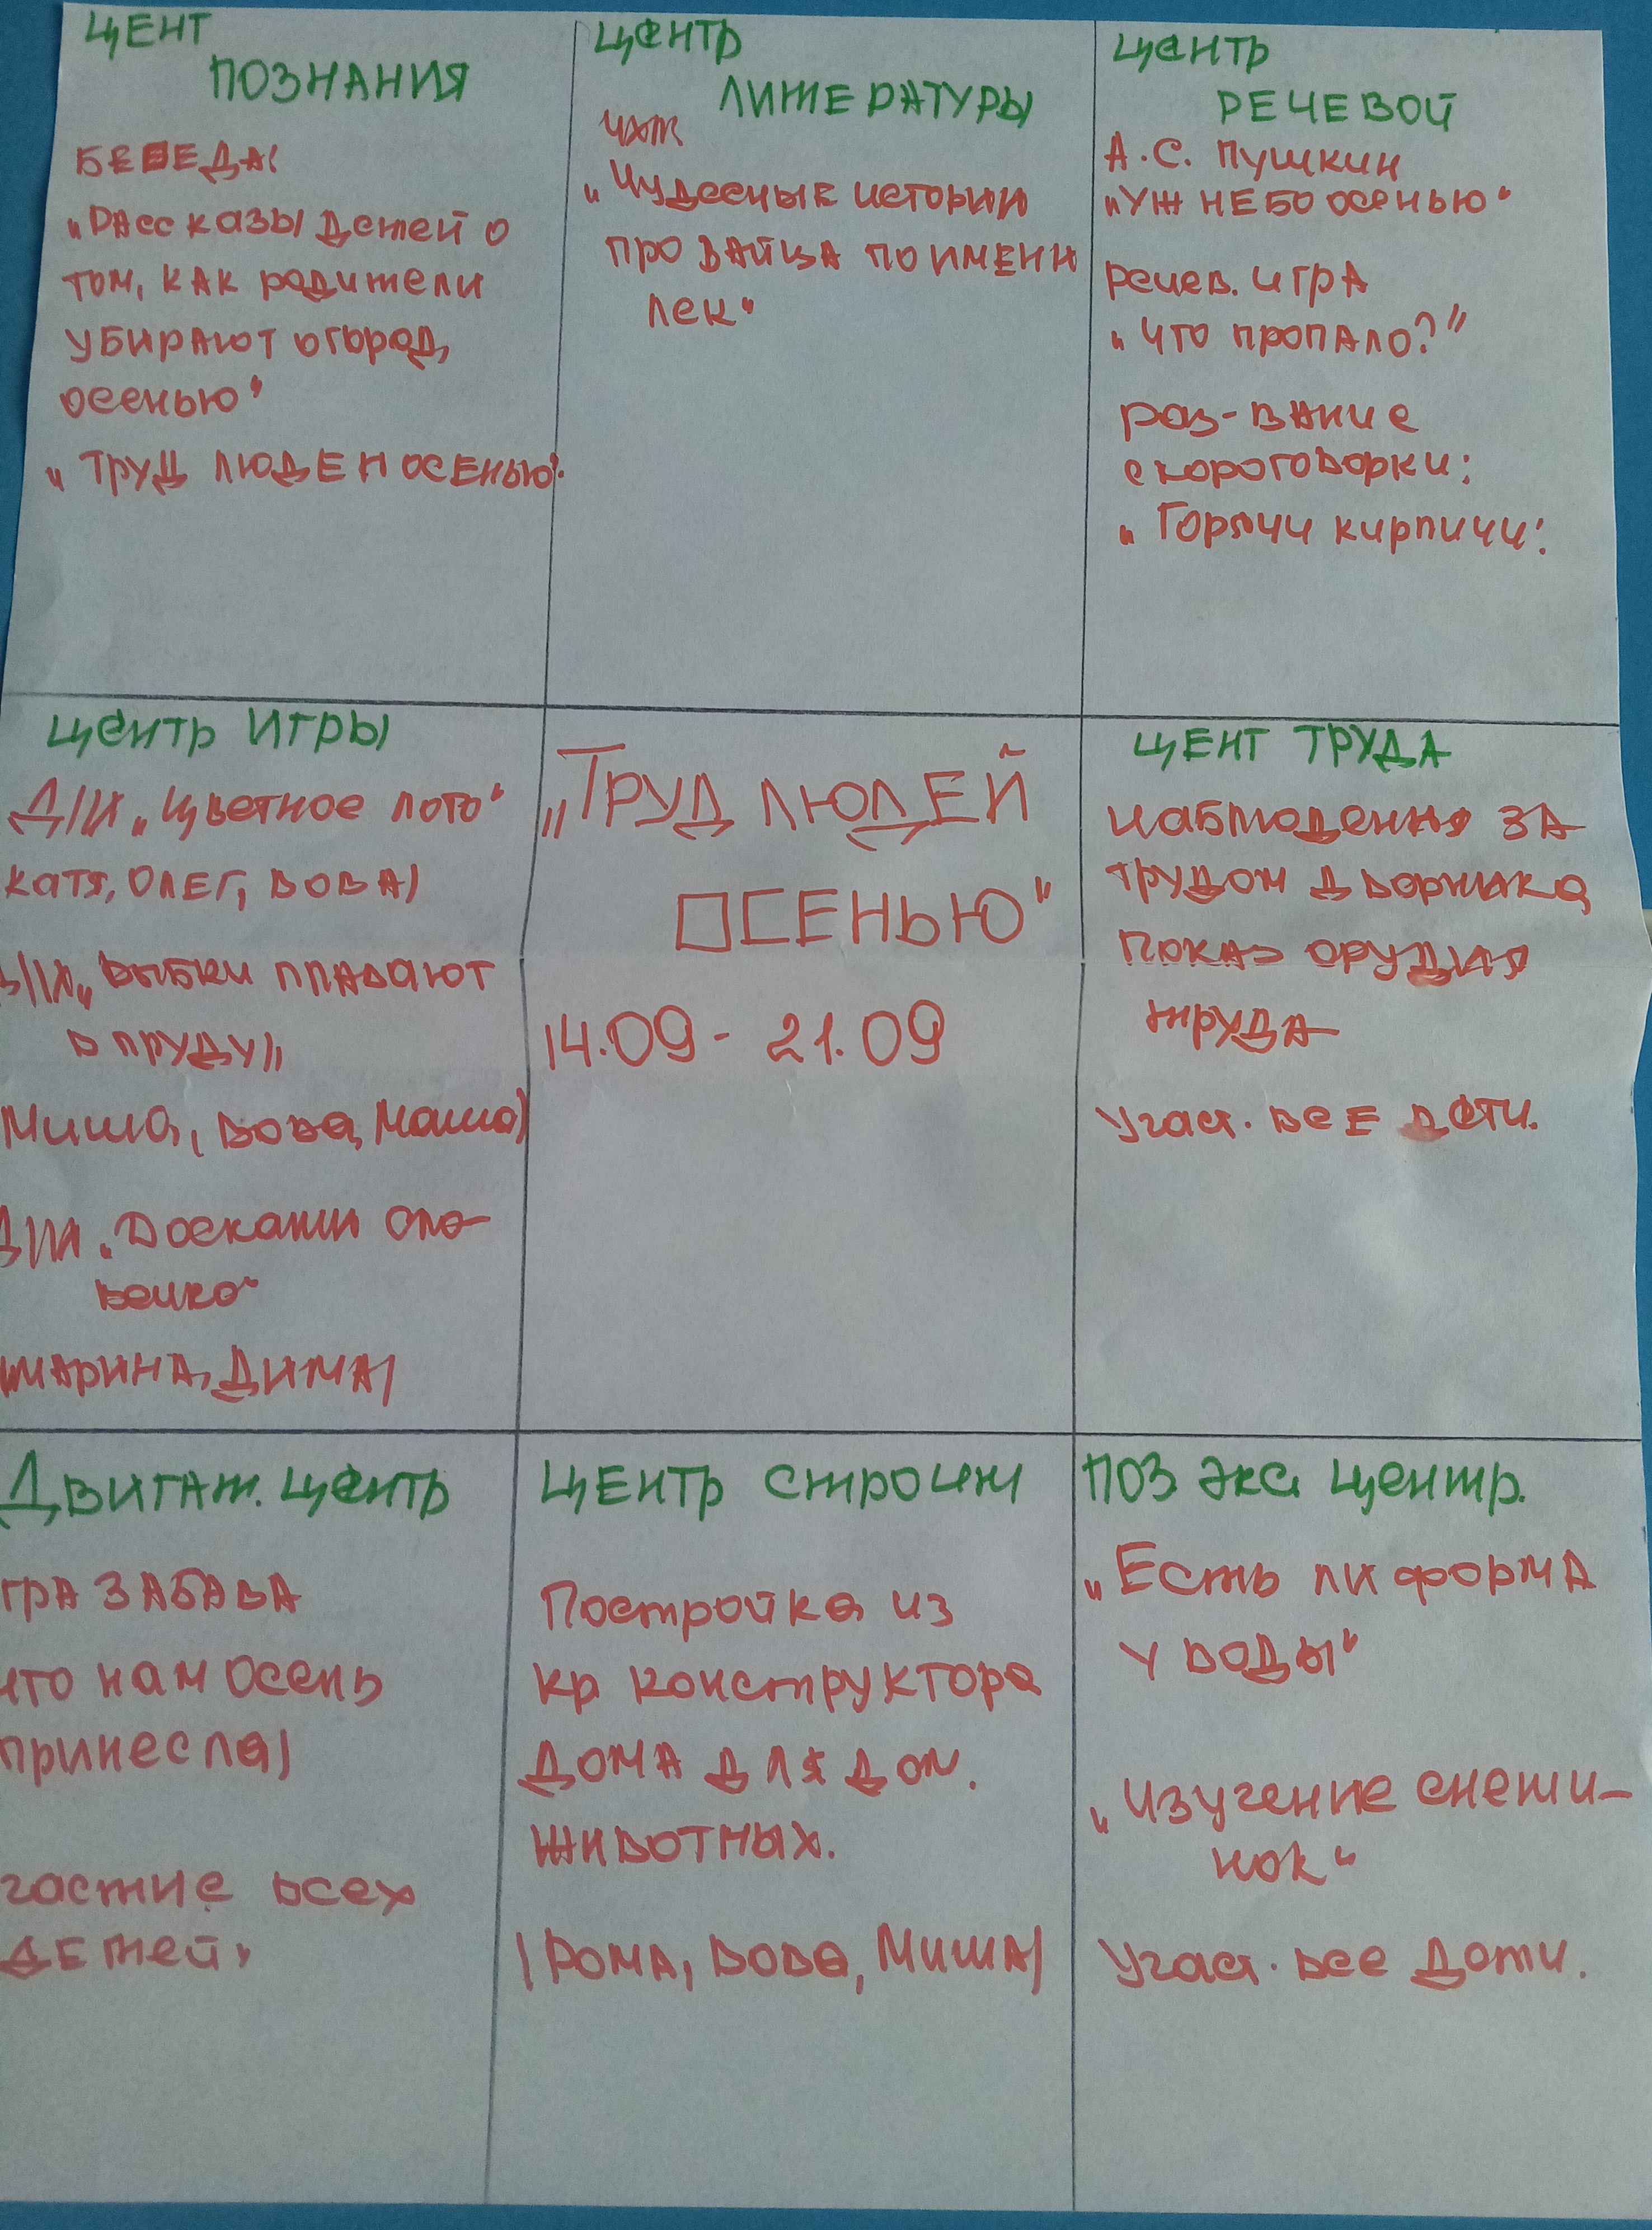 ЦЕНТ
ПОЗНАНИЯ
БЕСЕДА:
„Рассказы детей о
том, как родители
убирают огород,
осенью"
„Труд людей осенью".
ЦЕНТР
ЛИТЕРАТУРЫ
ЧХЛ
„Чудесные истории
про зайца по имени
Лек"
ЦЕНТР
РЕЧЕВОЙ
А.С. Пушкин
„Уж небо осенью"
Речев. игра
„Что пропало?"
раз-вание
скороговорки:
„Горячи кирпичи".
ЦЕНТР ИГРЫ
Д/И „Цветное лото"
Катя, Олег, Вова)
Д/И „Рыбки плавают
в пруду"
Миша, Вова, Маша)
Д/И „Доскажи сло-
вечко"
Марина, Дима)
„ТРУД ЛЮДЕЙ
ОСЕНЬЮ"
14.09 - 21.09
ЦЕНТ ТРУДА
Наблюдения за
трудом дворника
показ орудия
труда
Участ. все дети.
ДВИГАТ. ЦЕНТР
гра забава
что нам осень
принесла)
частие всех
детей,
ЦЕНТР СТРОИТ
Постройка из
кр конструктора
дома для дом.
животных.
(Рома, Вова, Миша)
ПОЗ ЭКС. ЦЕНТР.
„Есть ли форма
у воды"
„Изучение снежи-
нок"
Участ. все дети.